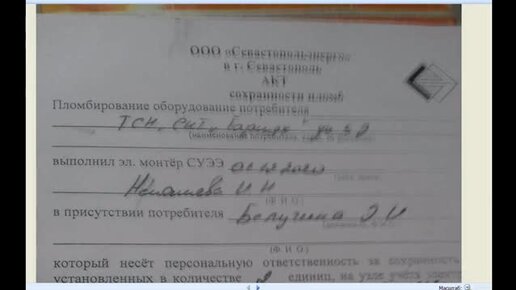 ООО «Севастопольэнерго»
в г. Севастополь
АКТ
сохранности пломб
Пломбирование оборудование потребителя
ТСН, СНТ,
(наименование потребителя,
выполнил эл. монтёр СУЭЭ
И Н
(Ф. И. О.)
в присутствии потребителя Белугина Э. И
(Ф. И. О.)
который несёт персональную ответственность за сохранность
установленных в количестве 2 единиц, на узле учёта
Масштаб: